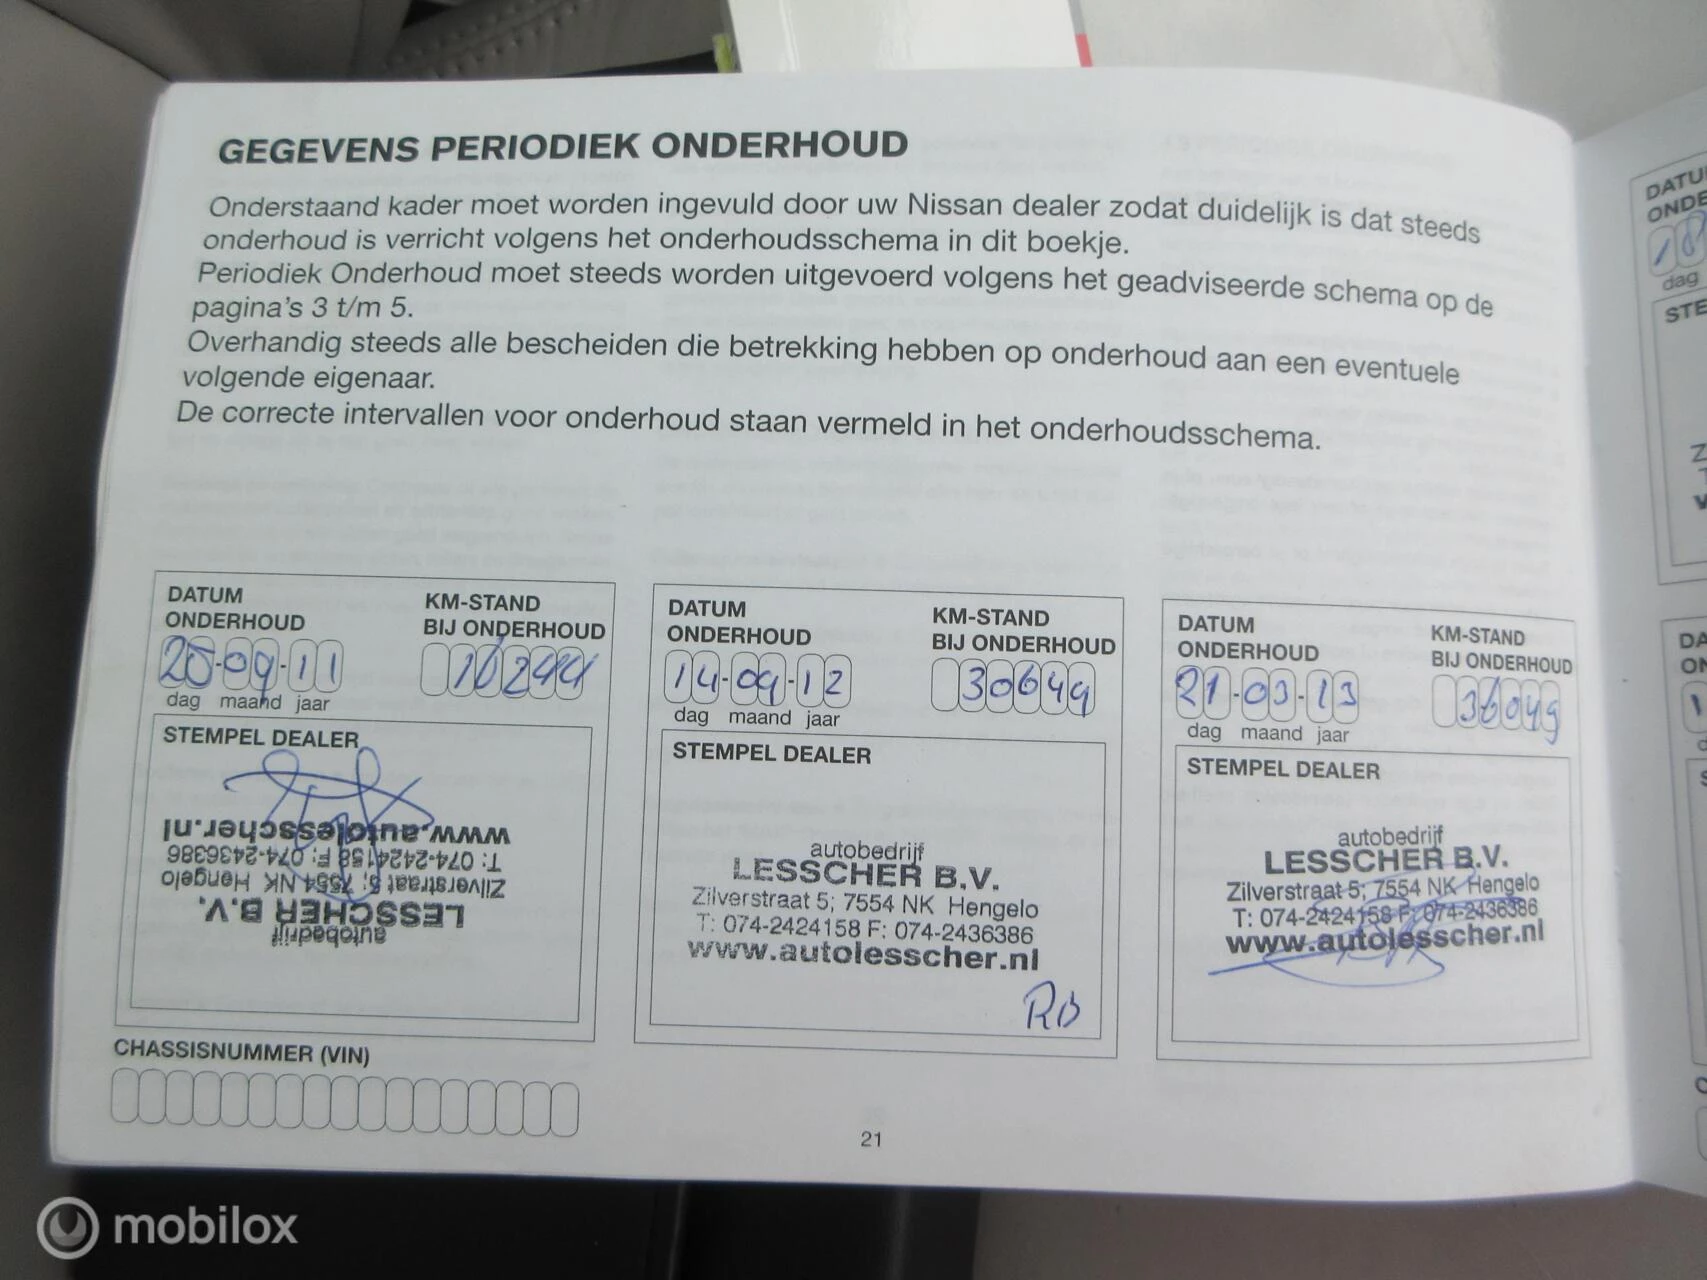 GEGEVENS PERIODIEK ONDERHOUD
Onderstaand kader moet worden ingevuld door uw Nissan dealer zodat duidelijk is dat steeds
onderhoud is verricht volgens het onderhoudsschema in dit boekje.
Periodiek Onderhoud moet steeds worden uitgevoerd volgens het geadviseerde schema op de
pagina's 3 t/m 5.
Overhandig steeds alle bescheiden die betrekking hebben op onderhoud aan een eventuele
volgende eigenaar.
De correcte intervallen voor onderhoud staan vermeld in het onderhoudsschema.
DATUM
ONDERHOUD
KM-STAND
BIJ ONDERHOUD
25-09-11
16244
dag maand jaar
STEMPEL DEALER
autobedrijf
LESSCHER B.V.
Zilverstraat 5; 7554 NK Hengelo
T: 074-2424158 F: 074-2436386
www.autolesscher.nl
CHASSISNUMMER (VIN)
DATUM
ONDERHOUD
KM-STAND
BIJ ONDERHOUD
14-09-12
30649
dag maand jaar
STEMPEL DEALER
autobedrijf
LESSCHER B.V.
Zilverstraat 5; 7554 NK Hengelo
T: 074-2424158 F: 074-2436386
www.autolesscher.nl
RB
DATUM
ONDERHOUD
KM-STAND
BIJ ONDERHOUD
21-03-13
36049
dag maand jaar
STEMPEL DEALER
autobedrijf
LESSCHER B.V.
Zilverstraat 5; 7554 NK Hengelo
T: 074-2424158 F: 074-2436386
www.autolesscher.nl
21
dag
mobilox